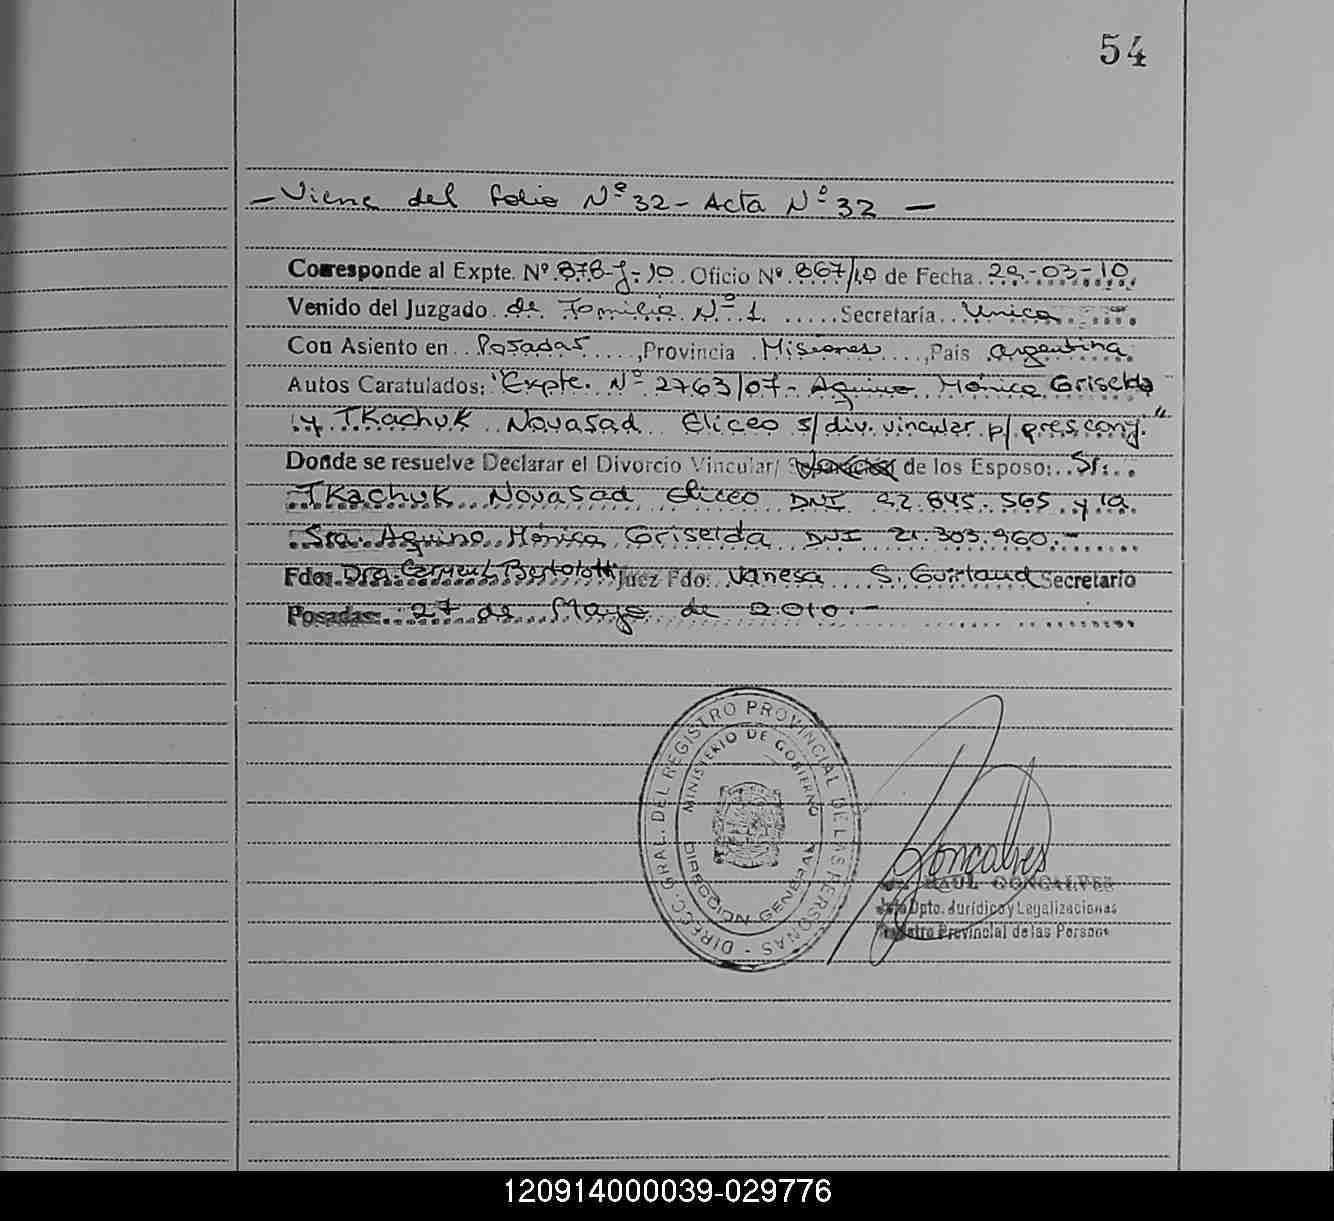 54
- Viene del folio Nº 32 - Acta Nº 32 -
Corresponde al Expte. Nº 878-J-10 Oficio Nº 867/10 de Fecha 29-03-10
Venido del Juzgado de Familia Nº 1 Secretaría Unica
Con Asiento en Posadas, Provincia Misiones, Pais Argentina
Autos Caratulados: "Expte. Nº 2763/07 - Aquino Mónica Griselda
y TKachuK Novasad Eliceo s/div. vincular p/ pres. conj."
Donde se resuelve Declarar el Divorcio Vincular/ de los Esposo: Sr.
TKachuK Novasad Eliceo DNI 92.845.565 y la
Sra. Aquino Mónica Griselda DNI 21.303.960.-
Fdo: Dra. Carmen L Bertolotti Juez Fdo: Vanesa S. Guirlaud Secretario
Posadas: 27 de Mayo de 2010.-
DIRECC. GRAL. DEL REGISTRO PROVINCIAL DE LAS PERSONAS -
MINISTERIO DE GOBIERNO
DIRECCION GENERAL
Goncalves
RAUL GONCALVES
Jefe Dpto. Jurídico y Legalizaciones
Registro Provincial de las Personas
120914000039-029776